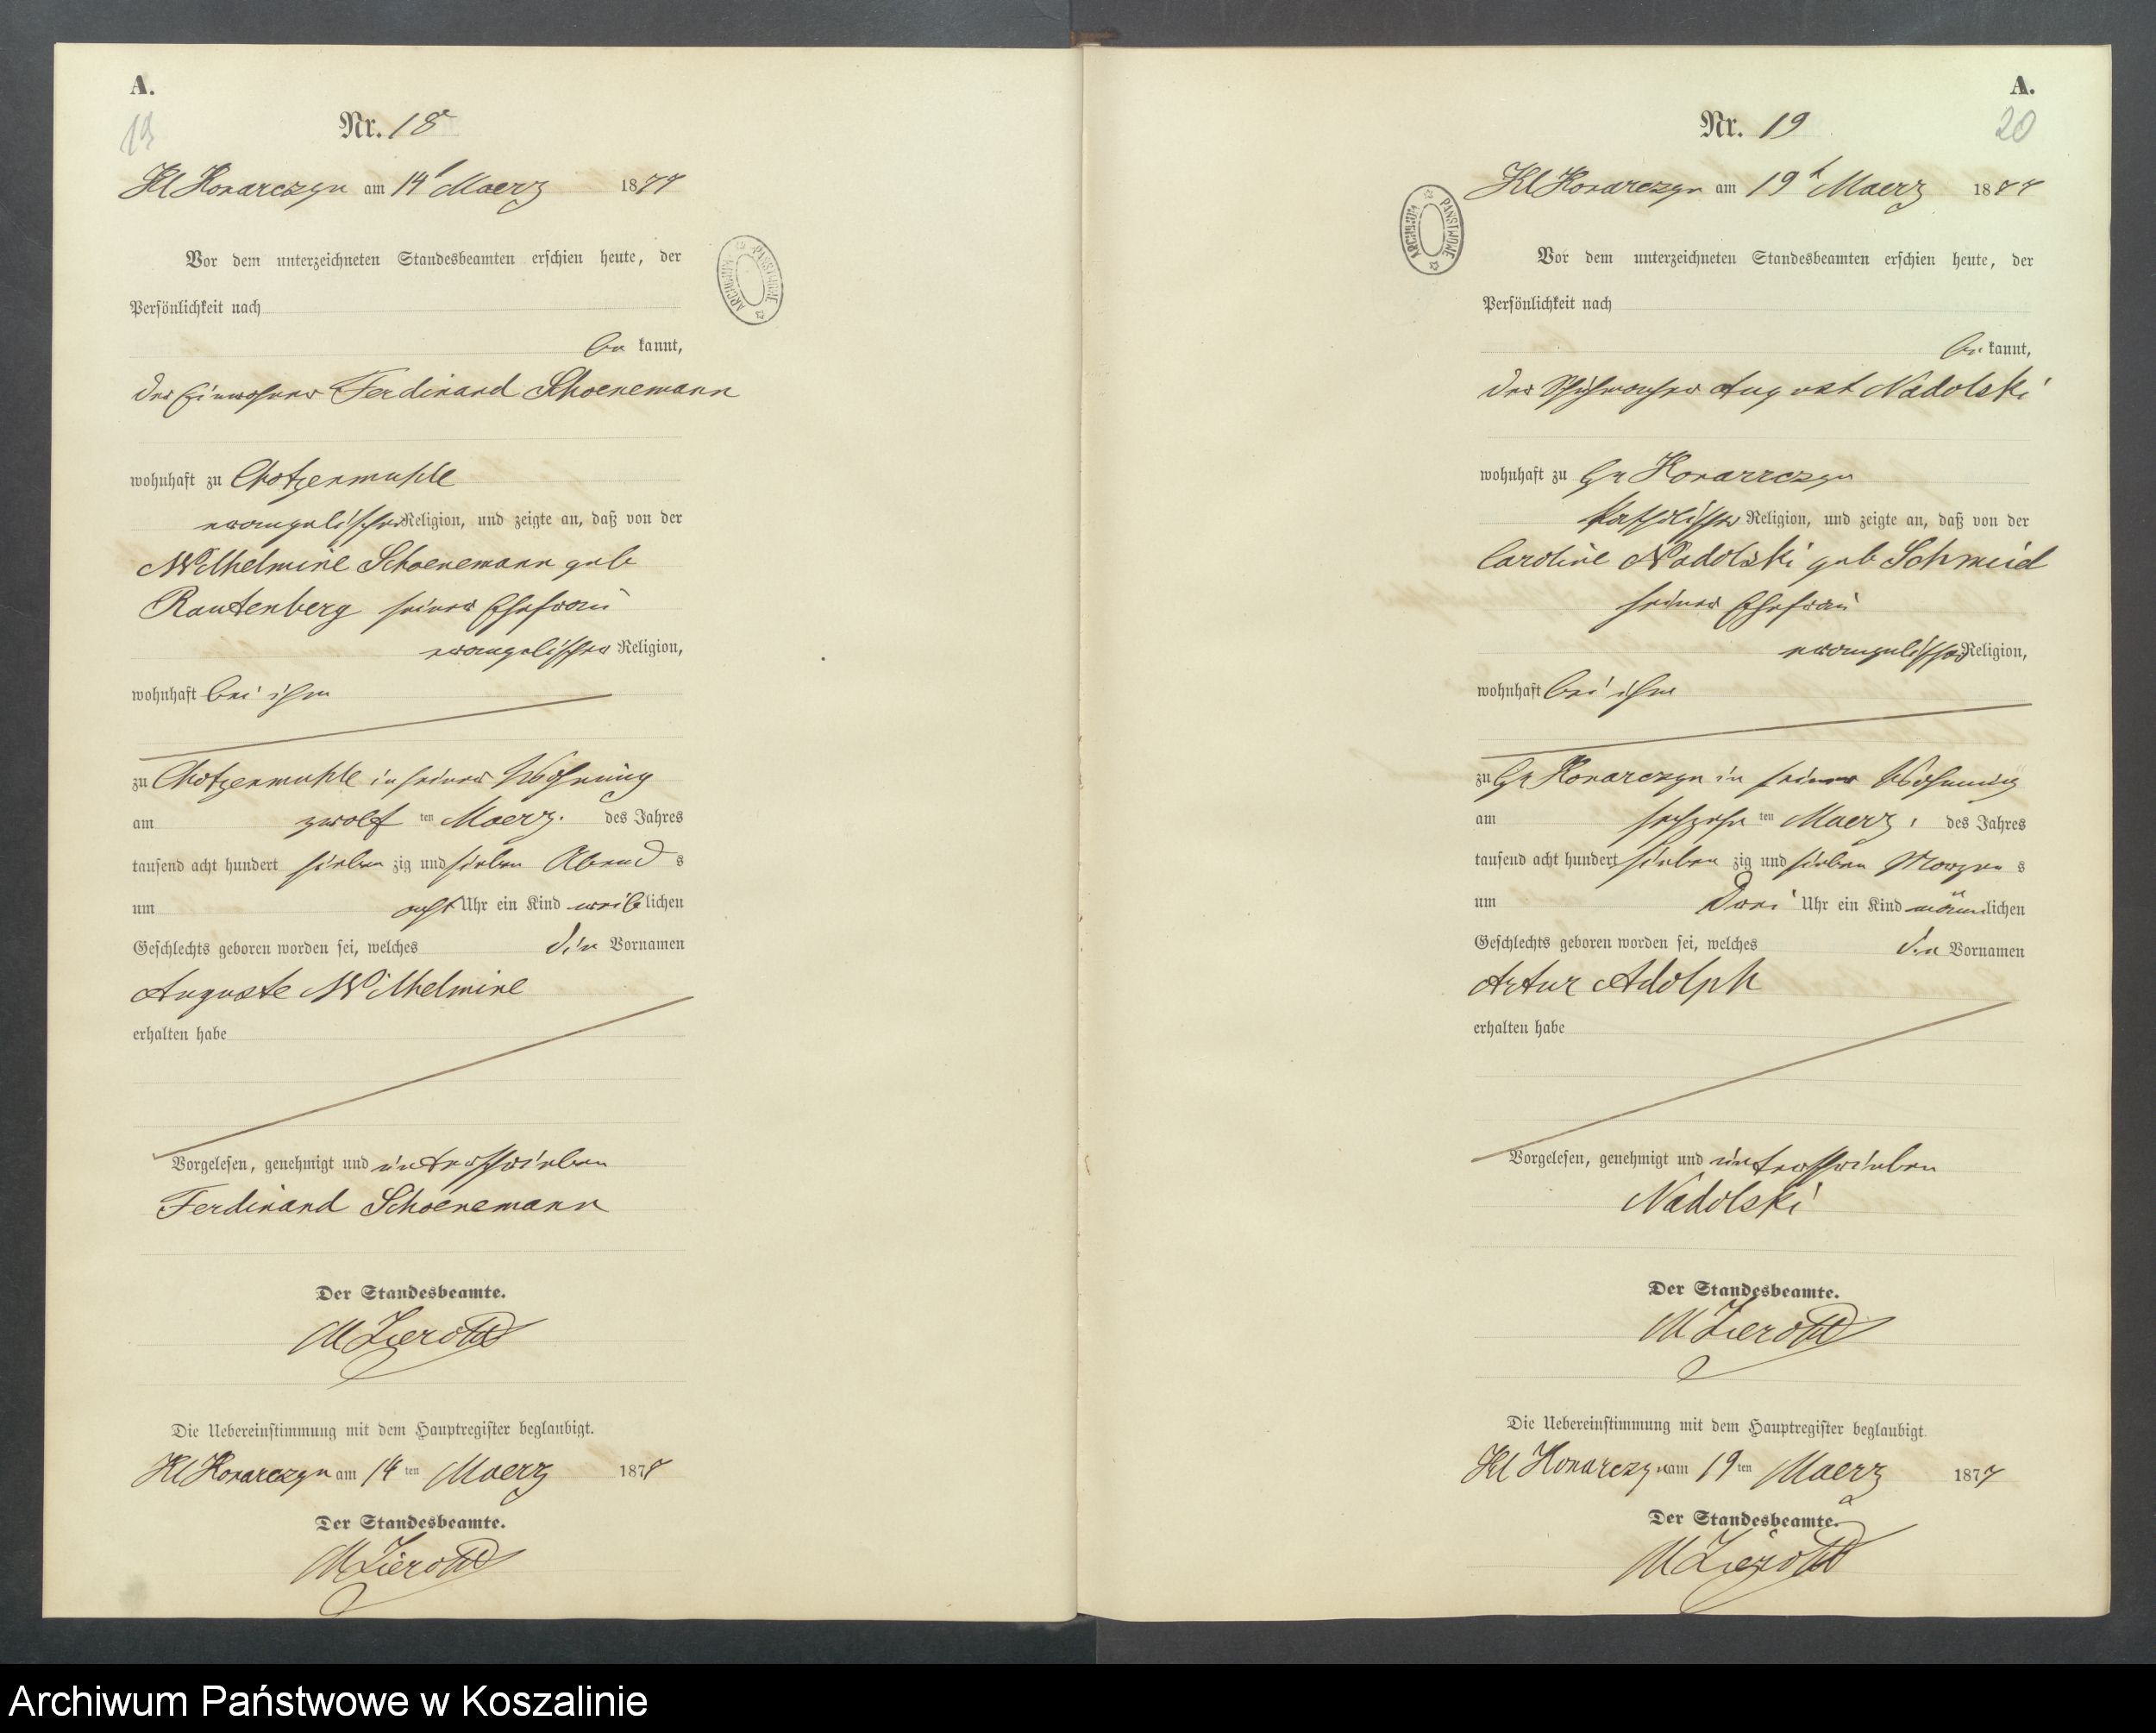 A.
19
Nr. 18
Kl Konarczyn am 14t Maerz 1877
Vor dem unterzeichneten Standesbeamten erschien heute, der
Persönlichkeit nach
be kannt,
der Einwohner Ferdinand Schoenemann
wohnhaft zu Chotzenmuhle
evangelischer Religion, und zeigte an, daß von der
Wilhelmine Schoenemann geb
Rautenberg seiner Ehefrau
evangelischer Religion,
wohnhaft bei ihm
zu Chotzenmuhle in seiner Wohnung
am zwolf ten Maerz. des Jahres
tausend acht hundert sieben zig und sieben Abend s
um acht Uhr ein Kind weiblichen
Geschlechts geboren worden sei, welches die Vornamen
Auguste Wilhelmine
erhalten habe
Vorgelesen, genehmigt und unterschrieben
Ferdinand Schoenemann
Der Standesbeamte.
M Zieroth
Die Uebereinstimmung mit dem Hauptregister beglaubigt.
Kl Konarczyn am 14 ten Maerz 1877
Der Standesbeamte.
M Zieroth
ARCHIWUM PAŃSTWOWE
A.
20
Nr. 19
Kl Konarczyn am 19t Maerz 1877
Vor dem unterzeichneten Standesbeamten erschien heute, der
Persönlichkeit nach
be kannt,
der August Nadolski
wohnhaft zu Gr Konarczyn
katholischer Religion, und zeigte an, daß von der
Caroline Nadolski geb Schmied
seiner Ehefrau
evangelischer Religion,
wohnhaft bei ihm
zu Gr Konarczyn in seiner Wohnung
am sechzehn ten Maerz, des Jahres
tausend acht hundert sieben zig und sieben Morgen s
um Drei Uhr ein Kind männlichen
Geschlechts geboren worden sei, welches die Vornamen
Artur Adolph
erhalten habe
Vorgelesen, genehmigt und unterschrieben
Nadolski
Der Standesbeamte.
M Zieroth
Die Uebereinstimmung mit dem Hauptregister beglaubigt
Kl Konarczyn am 19 ten Maerz 1877
Der Standesbeamte.
M Zieroth
ARCHIWUM PAŃSTWOWE
Archiwum Państwowe w Koszalinie